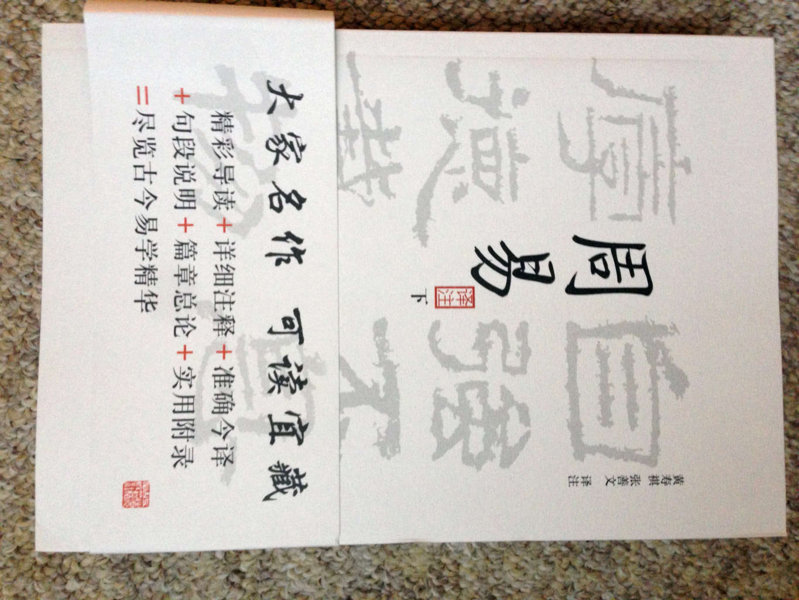 自强不息
厚德载物
周易
译注
下
黄寿祺
张善文
译注
大家名作 可读宜藏
精彩导读+详细注释+准确今译
+句段说明+篇章总论+实用附录
=尽览古今易学精华